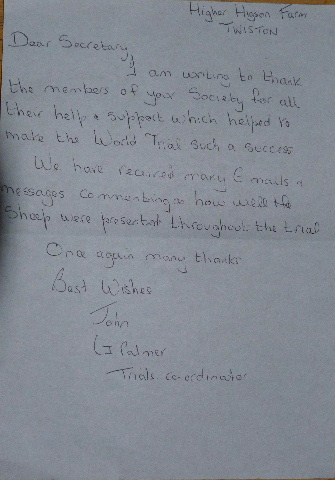 Higher Higson Farm
TWISTON
Dear Secretary,
I am writing to thank
the members of your Society for all
their help & support which helped to
make the World Trial such a success
We have recieved many Emails &
messages commenting on how well the
Sheep were present throughout the trial
Once again many thanks
Best Wishes
John
G Palmer
Trials co-ordinator